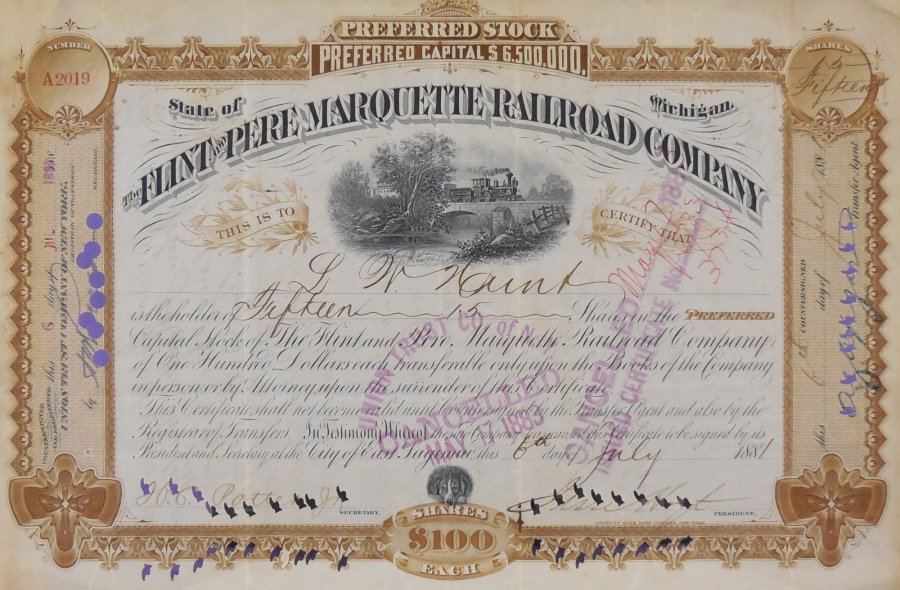 PREFERRED STOCK
PREFERRED CAPITAL $6,500,000.
NUMBER
A2019
SHARES
15
Fifteen
State of Michigan.
The FLINT AND PERE MARQUETTE RAILROAD COMPANY
THIS IS TO CERTIFY THAT
is the holder of Fifteen 15 Shares in the PREFERRED
Capital Stock of The Flint and Pere Marquette Railroad Company
of One Hundred Dollars each transferable only upon the Books of the Company
in person or by Attorney upon the surrender of this Certificate.
This Certificate shall not become valid until countersigned by the Transfer Agent and also by the
Registrar of Transfers. In Testimony Whereof the said Company has caused this Certificate to be signed by its
President and Secretary at the City of East Saginaw, this 6th day of July 1881
SECRETARY.
PRESIDENT.
AMERICAN BANK NOTE COMPANY, NEW YORK.
SHARES
$100
EACH
UNION TRUST CO. OF N.Y.
CANCELLED
1883
CANCELLED
CERTIFICATE No.
COUNTERSIGNED
this 6th day of July 1881
Transfer Agent
SECRETARY.
by